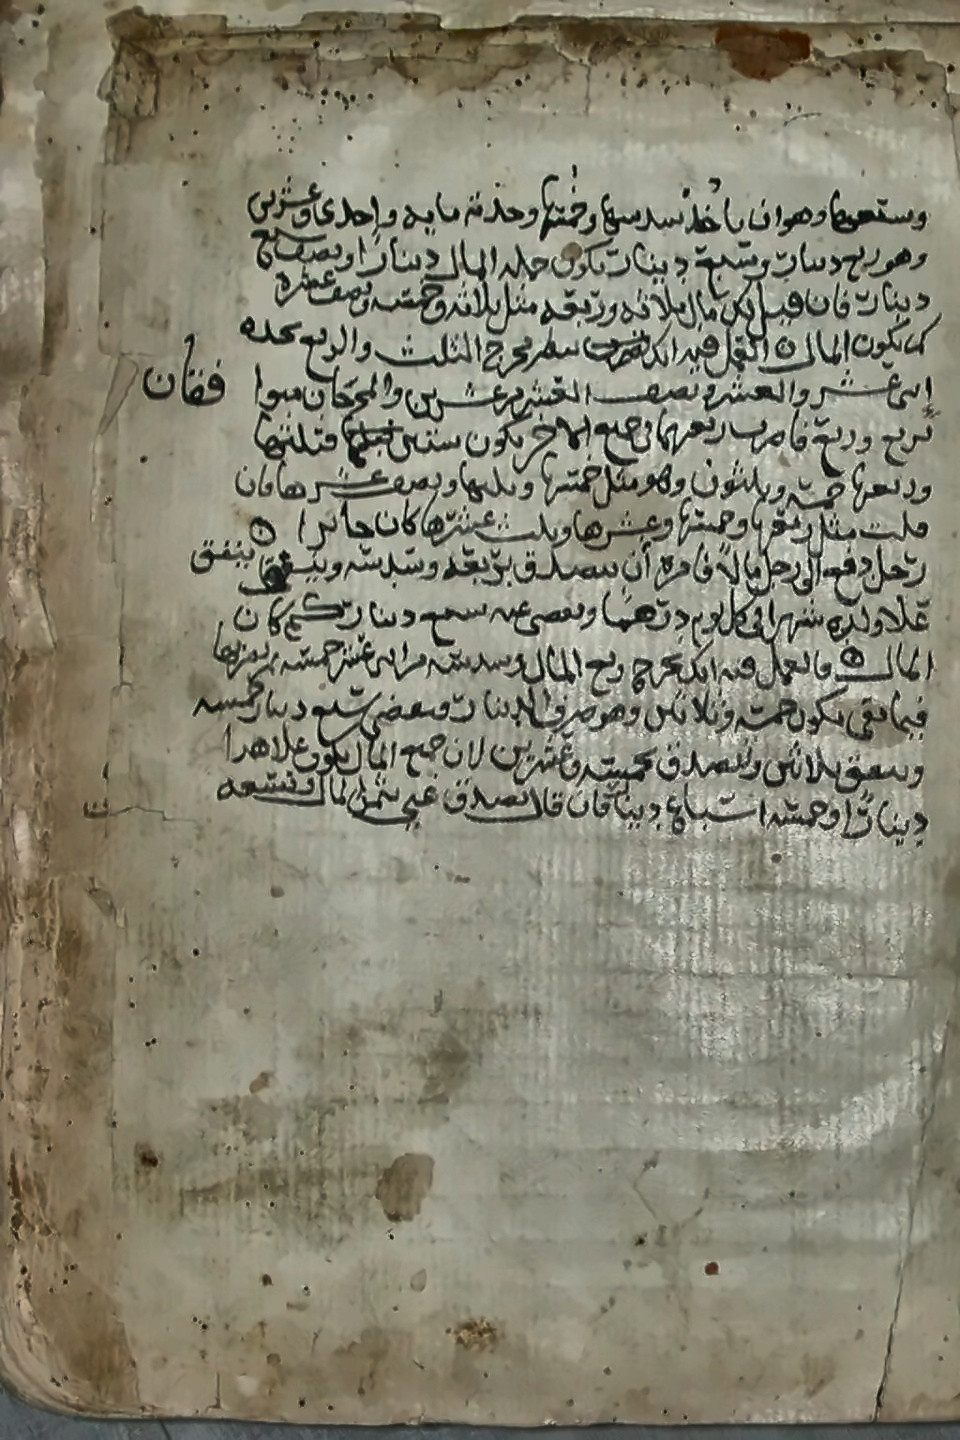 وهو ان ياخذ سدسها وخمسها وجذره مايه واحدى وعشرين
وهو ربع دينار وتسع دينار يكون جمله المال دينارا ونصف تسع
دينار فان قيل لك مال ثلاثه وربعه مثل ثلاثه وخمسه ونصف عشره
كم يكون المال العمل فيه انك تنظر مخرج الثلث والربع تجده
اثنى عشر والعشر ونصف العشر من عشرين والمخرجان فقان
بربع وربع فاضرب ربعهما فى جميع الاخر يكون ستين فثلثها
وربعها خمسه وثلثون وهو مثل خمسها وثلثها ونصف عشرها فان
قلت مثل ربعها وخمسها وعشرها وثلث عشرها كان جائزا
رجل دفع الى رجل مالا فامره ان يتصدق بربعه وسدسه وينفق
على ولده شهرا فى كل يوم درهما ويقضى عنه سبع دينار كم كان
المال فالعمل فيه انك تخرج ربع المال وسدسه من اثنى عشر خمسه
فيما بقى يكون خمسه وثلاثين وهو صرف الدينار ويقضى سبع دينار خمسه
وينفق ثلاثين ويتصدق بخمسه وعشرين لان جميع المال يكون على هذا
دينارا وخمسه اسباع دينار فان قال تصدق عنى بثمن المال وتسعه